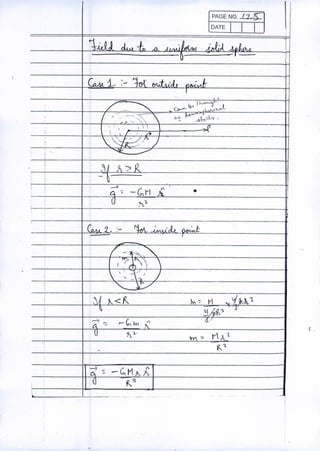 PAGE NO. 125
DATE
Field due to a uniform solid sphere
Case 1 :- For outside point
Can be thought
as homospherical
shells.
P
r
R
If r>R
g⃗ = -GM r̂
r²
Case 2. :- For inside point
m
R
If r<R
m = M × 4/3πr³
4/3πR³
g⃗ = -Gm r̂
r²
m = Mr³
R³
g⃗ = -GMr r̂
R³